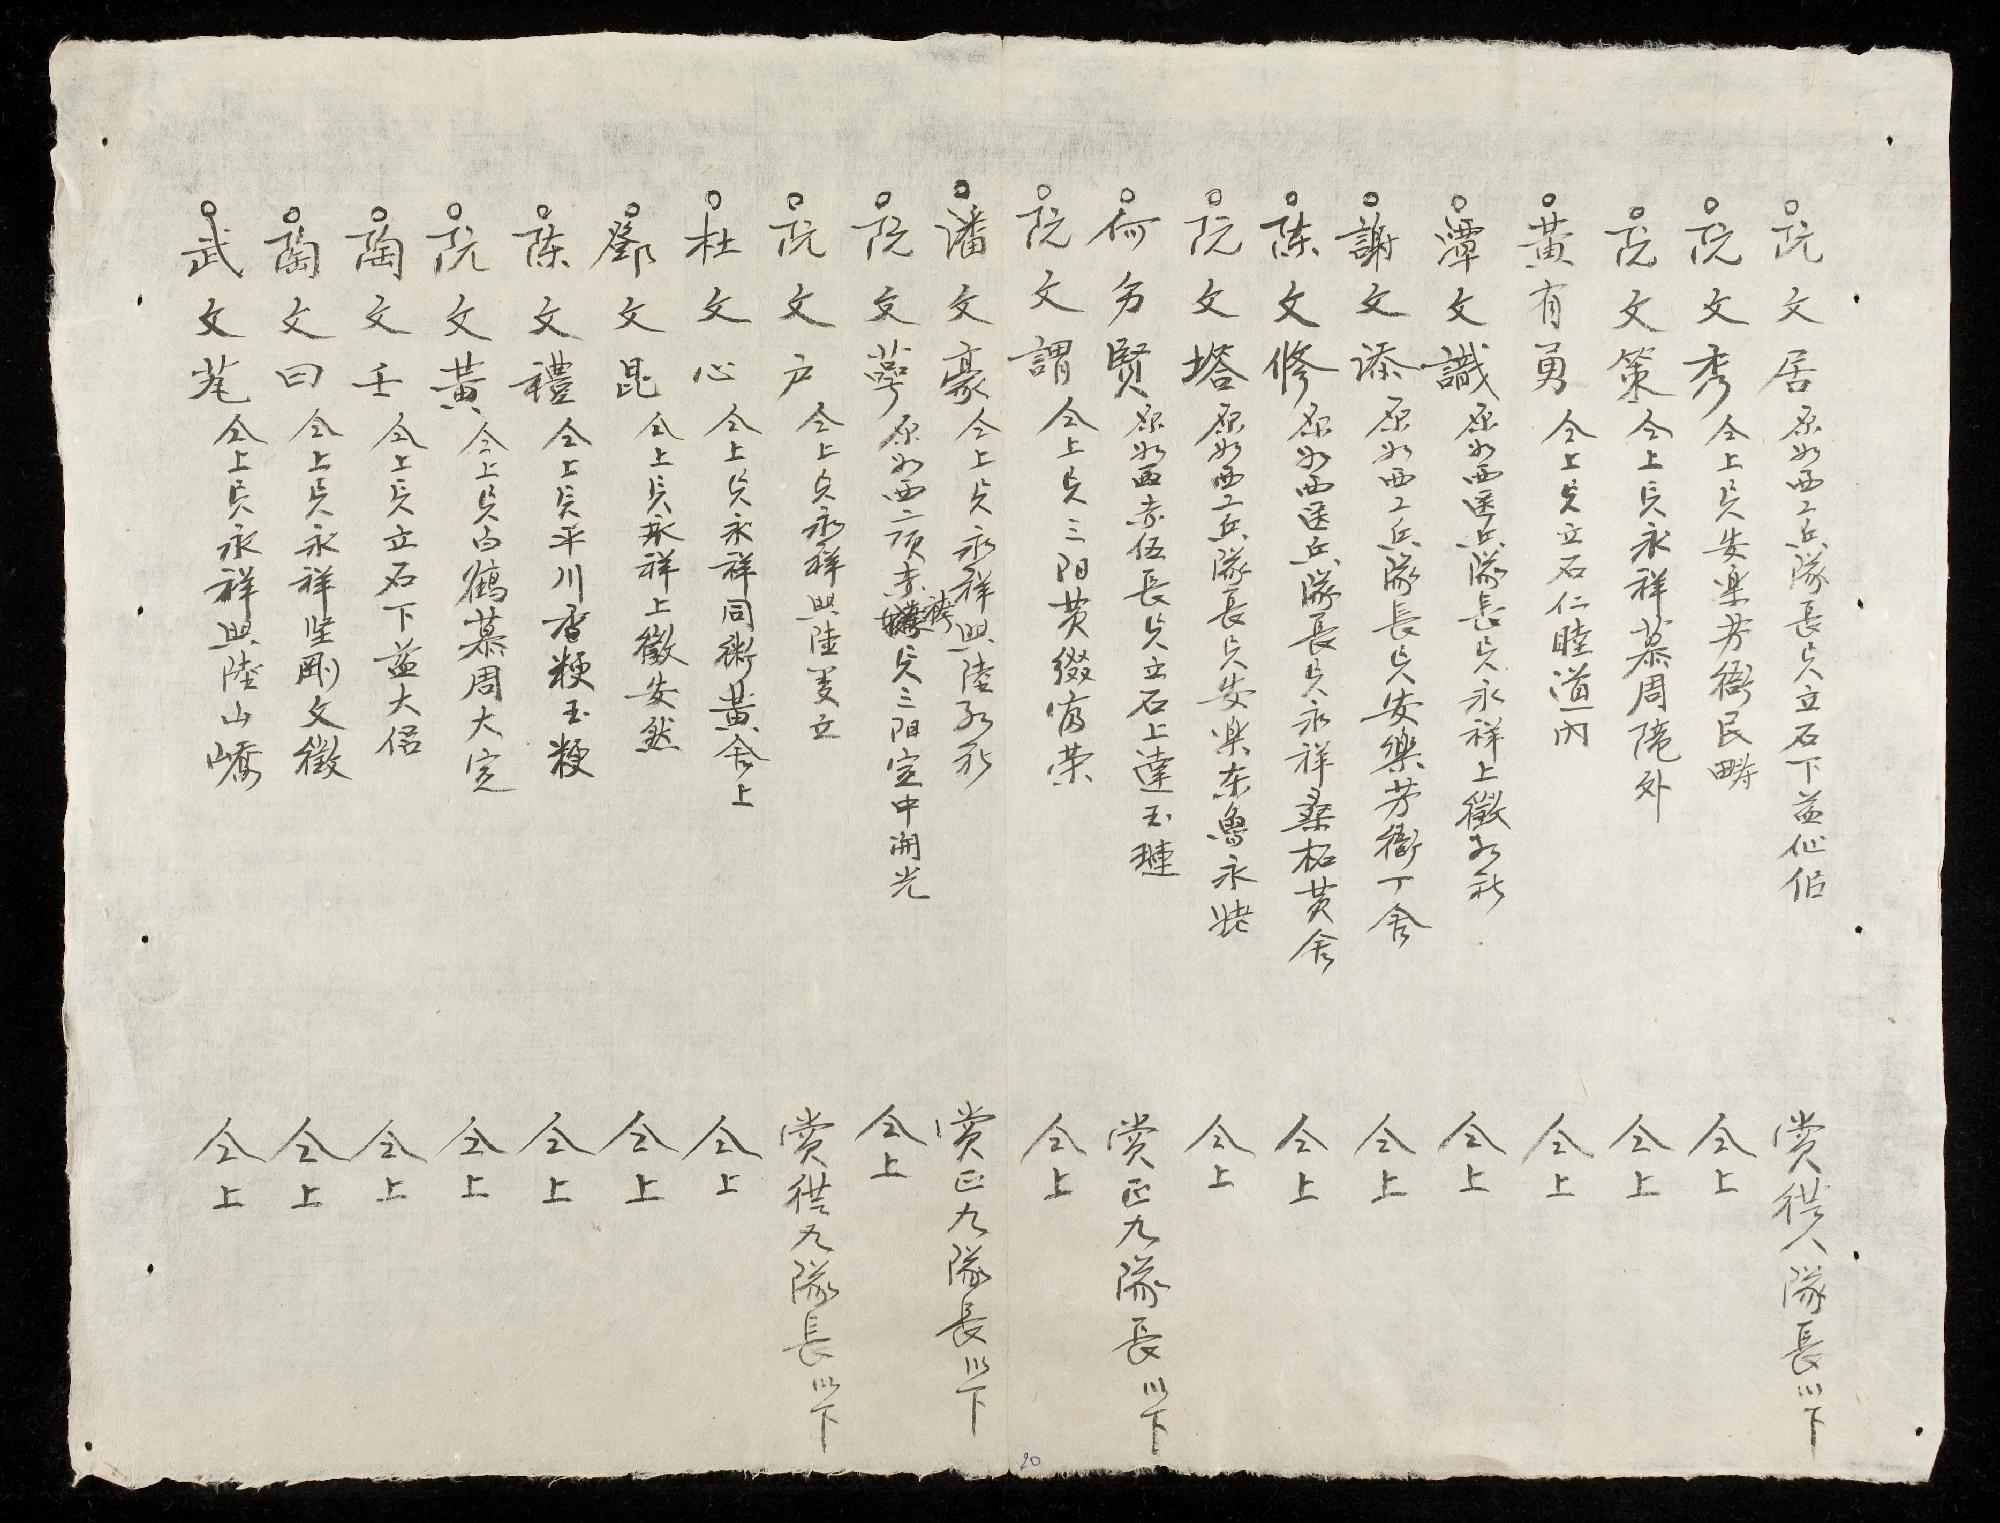 阮文居 原如西工兵隊長貝立石下益仙侶 賞從八隊長以下
阮文秀 仝上貝安楽芳衙民疇 仝上
阮文策 仝上貝永祥慕周陸外 仝上
黃有勇 仝上貝立石仁睦道內 仝上
潭文識 原如西医兵隊長貝永祥上徵 仝上
謝文添 原如西工兵隊長貝安樂芳衙丁舍 仝上
陈文修 原如西医兵隊長貝永祥桑柘黄舍 仝上
阮文塔 原如西工兵隊長貝安楽东魯永 仝上
何名賢 原如西赤伍長貝立石上達玉璉 賞正九隊長以下
阮文謂 仝上貝三阳黄綴富荣 仝上
潘文豪 仝上貝永祥興陸 賞正九隊長以下
阮文 原如西二項赤袴貝三阳宣中開光 仝上
阮文户 仝上貝永祥興陸姜立 賞從九隊長以下
杜文心 仝上貝永祥同衛黃舍上 仝上
鄧文昆 仝上貝永祥上徵安然 仝上
陈文禮 仝上貝平川香粳玉粳 仝上
阮文黃 仝上貝白鶴慕周大定 仝上
陶文壬 仝上貝立石下益大侶 仝上
陶文曰 仝上貝永祥坚剛文徵 仝上
武文 仝上貝永祥興陸山嶠 仝上
20